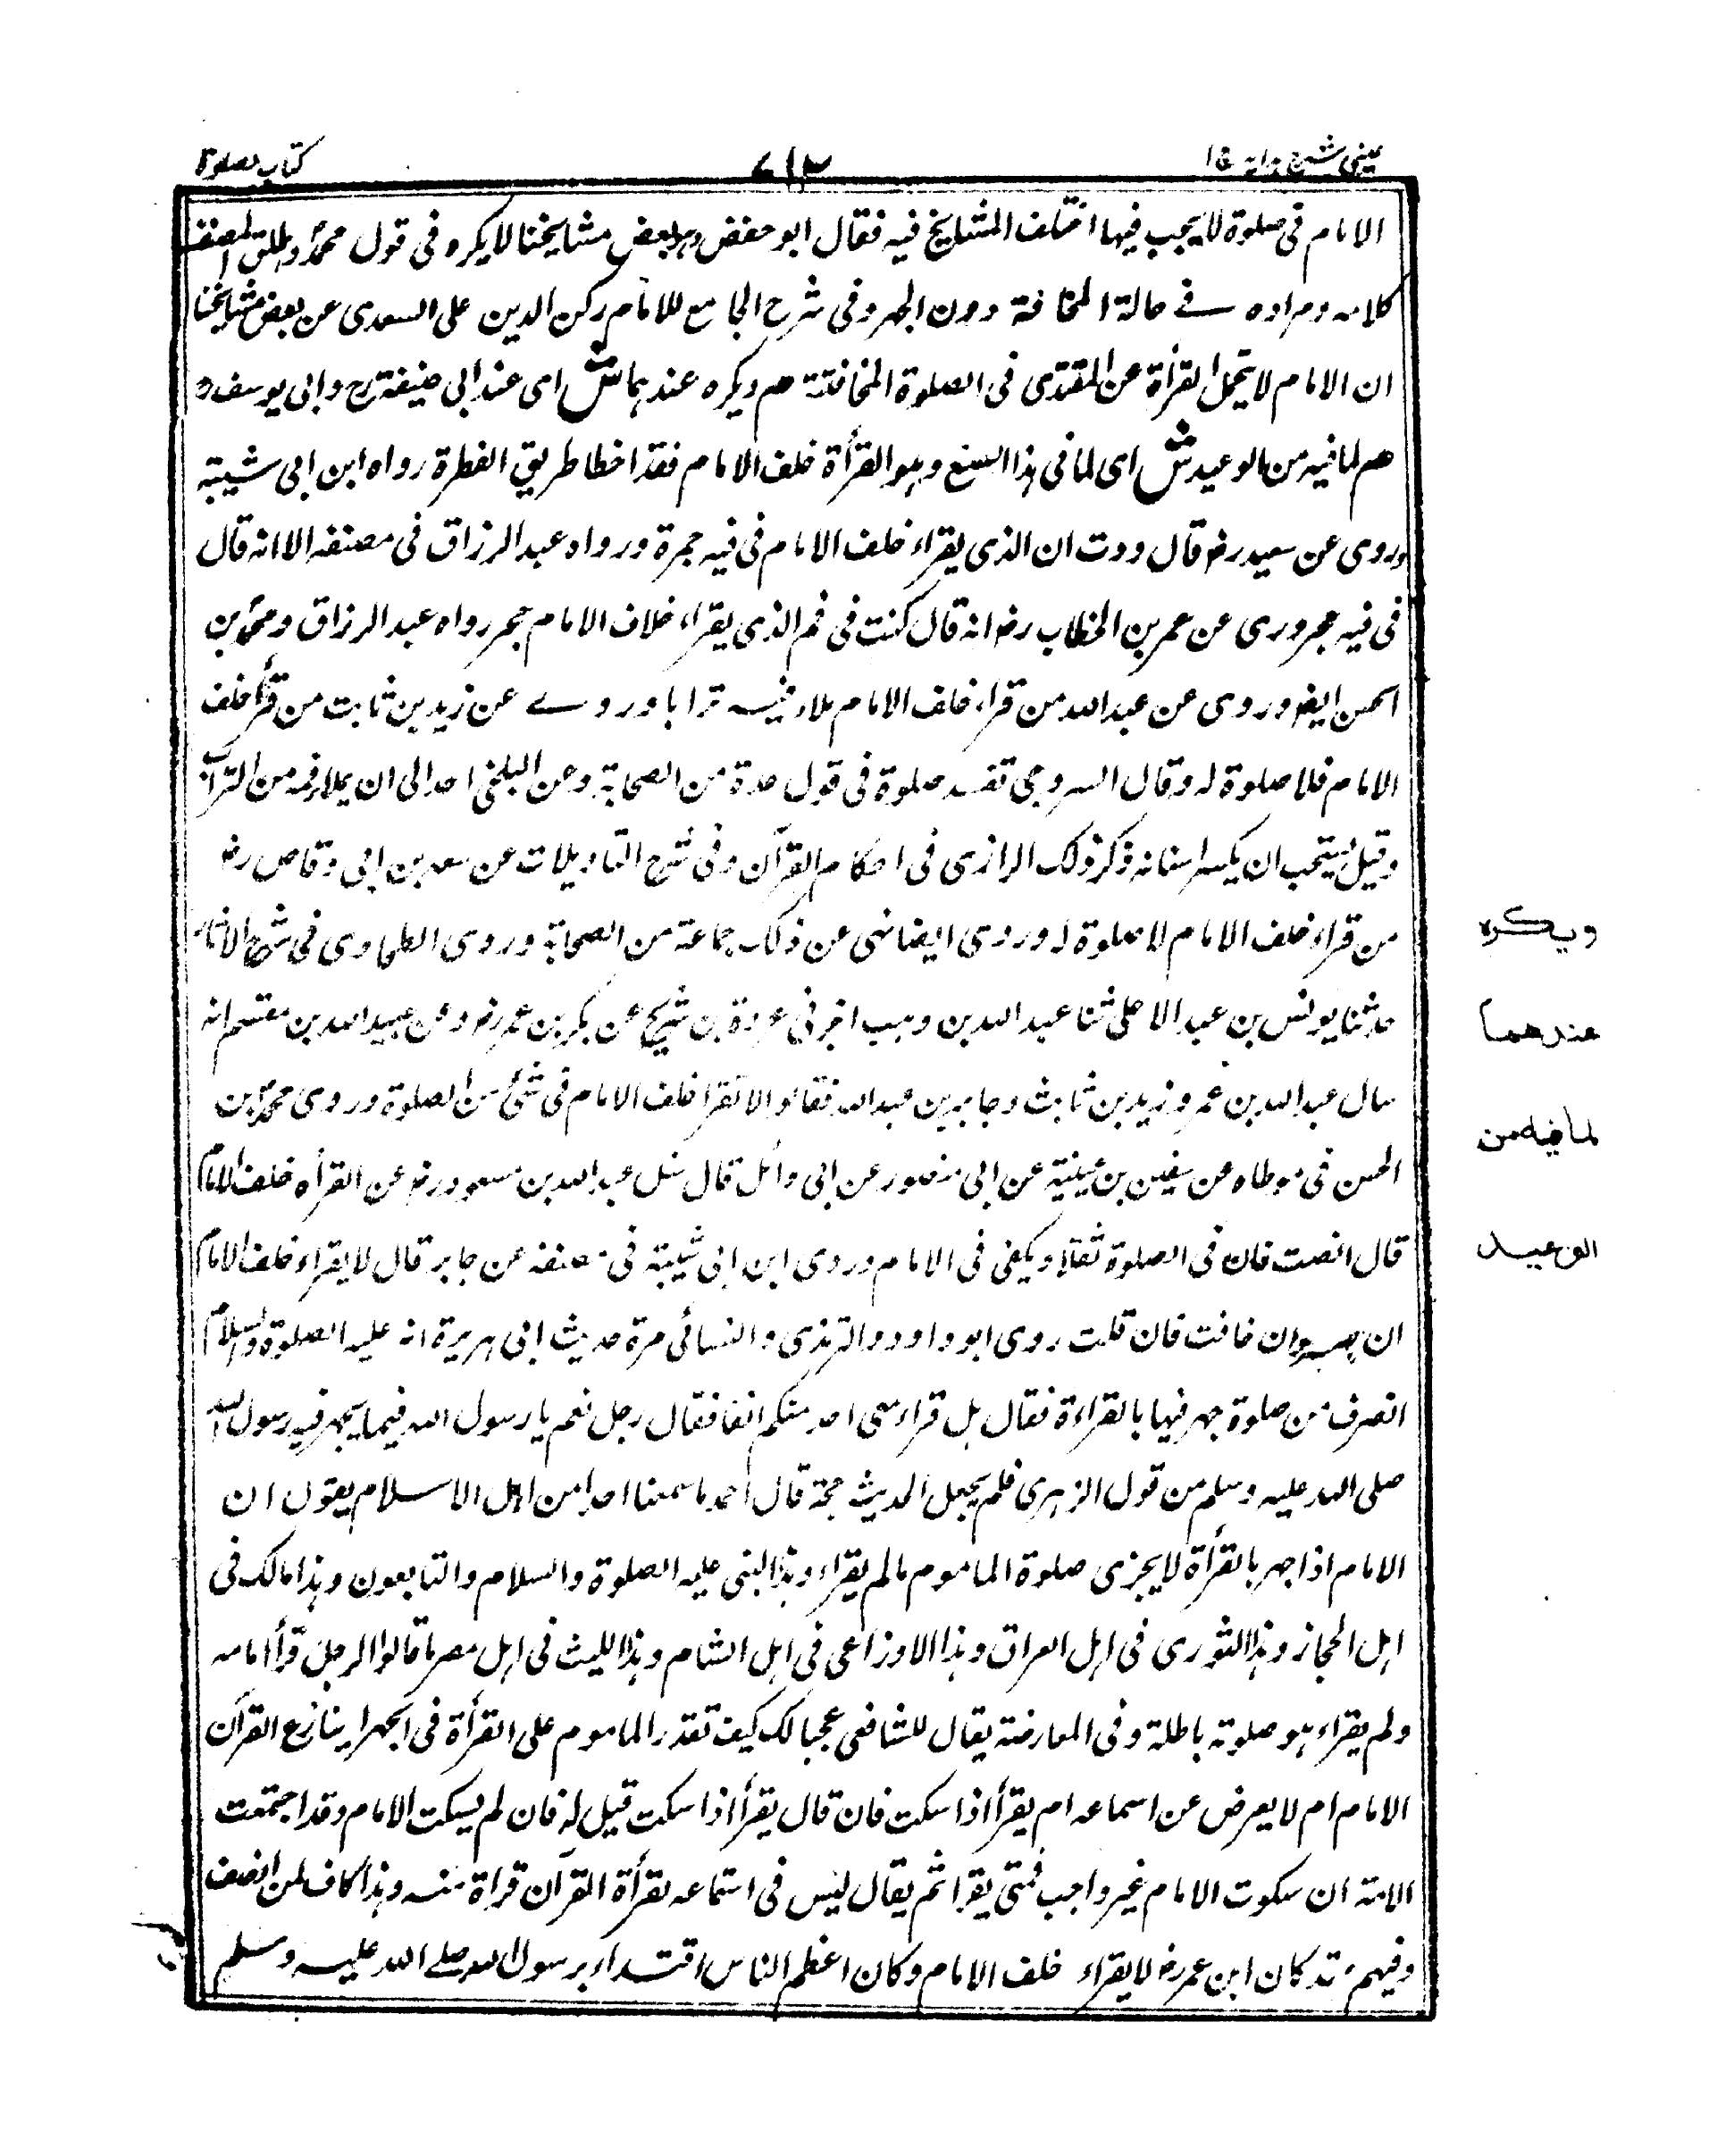 عینی شرح هدایه ج ۱
۷۱۳
کتاب الصلوة
الامام فی صلوة لا یجهر فیها اختلف المشایخ فیه فقال ابو حفص وبعض مشایخنا لا یکره فی قول محمد واطلق المصنف
کلامه ومراده فے حالة المخافتة دون الجهر وفی شرح الجامع للامام رکن الدین علی السعدی عن بعض مشایخنا
ان الامام لا یتحمل القرأة عن المقتدی فی الصلوة المخافتة م ویکره عندهما ش ای عند ابی حنیفة رح وابی یوسف رح
م لما فیه من الوعید ش ای لما فی هذا الصنع وهو القرأة خلف الامام فقد اخطا طریق الفطرة رواه ابن ابی شیبة
وروی عن سعید رض قال وددت ان الذی یقراء خلف الامام فی فیه جمرة ورواه عبد الرزاق فی مصنفه الا انه قال
فی فیه حجر وروی عن عمر بن الخطاب رض انه قال کنت فی فم الذی یقراء خلاف الامام حجر رواه عبد الرزاق ومحمد بن
الحسن ایض وروی عن عبد الله من قراء خلف الامام ملاء فیه ترابا وروے عن زید بن ثابت من قرأ خلف
الامام فلا صلوة له وقال السروجی تفسد صلوة فی قول عدة من الصحابة وعن البلخی احد الی ان یملا فمه من التراب
وقیل یستحب ان یکسر اسنانه ذکر ذلک الرازی فی احکام القرآن وفی شرح التاویلات عن سعد بن ابی وقاص رض
من قراء خلف الامام لا صلوة له وروی ایضا نهی عن ذلک جماعة من الصحابة وروی الطحاوی فی شرح الاثار
حدثنا یونس بن عبد الاعلی ثنا عبد الله بن وهب اخبرنی عروة بن شریح عن بکر بن عمر رض وعن عبید الله بن مقسم انه
سال عبد الله بن عمر وزید بن ثابت وجابر بن عبد الله فقالوا لا تقرا خلف الامام فی شئ من الصلوة وروی محمد بن
الحسن فی موطاه عن سفین بن عیینة عن ابی منصور عن ابی وائل قال سئل عبد الله بن مسعود رض عن القرأه خلف الامام
قال انصت فان فی الصلوة شغلا ویکفی فی الامام وروی ابن ابی شیبة فی مصنفه عن جابر قال لا یقراء خلف الامام
ان جهر وان خافت فان قلت روی ابو داود والترمذی والنسائی مرة حدیث ابی هریرة انه علیه الصلوة والسلام
انصرف من صلوة جهر فیها بالقراءة فقال هل قراء معی احد منکم انفا فقال رجل نعم یا رسول الله فیما یجهر فیه رسول الله
صلی الله علیه وسلم من قول الزهری فلم یجعل الحدیث حجة قال احمد ما سمعنا احدا من اهل الاسلام یقول ان
الامام اذا جهر بالقرأة لا یجزی صلوة الماموم ما لم یقراء وهذا النبی علیه الصلوة والسلام والتابعون وهذا مالک فی
اهل الحجاز وهذا الثوری فی اهل العراق وهذا الاوزاعی فی اهل الشام وهذا اللیث فی اهل مصر ما قالوا الرجل قرأ امامه
ولم یقراء هو صلوته باطلة وفی المعارضة یقال للشافعی عجبا لک کیف تقدر الماموم علی القرأة فی الجهر اینازع القرآن
الامام ام لا یعرض عن اسماعه ام یقرأ اذا سکت فان قال یقرأ اذا سکت قیل له فان لم یسکت الامام وقد اجتمعت
الامة ان سکوت الامام غیر واجب فمتی یقرا ثم یقال لیس فی استماعه بقرأة القرآن قراة منه وهذا کاف لمن انصف
وفهم وقد کان ابن عمر رض لا یقراء خلف الامام وکان اعظم الناس اقتداء برسول الله صلے الله علیه وسلم
ویکره
عندهما
لما فیه من
الوعید